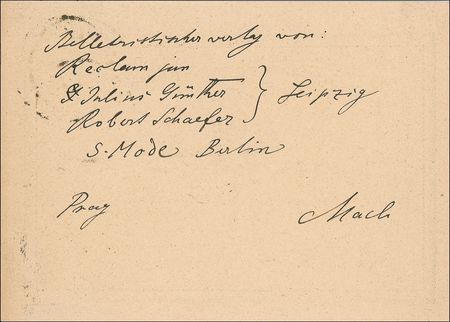 Belletristischer verlag von:
Reclam jun
& Julius Günther } Leipzig
Robert Schaefer
S. Mode Berlin
Prag Mach